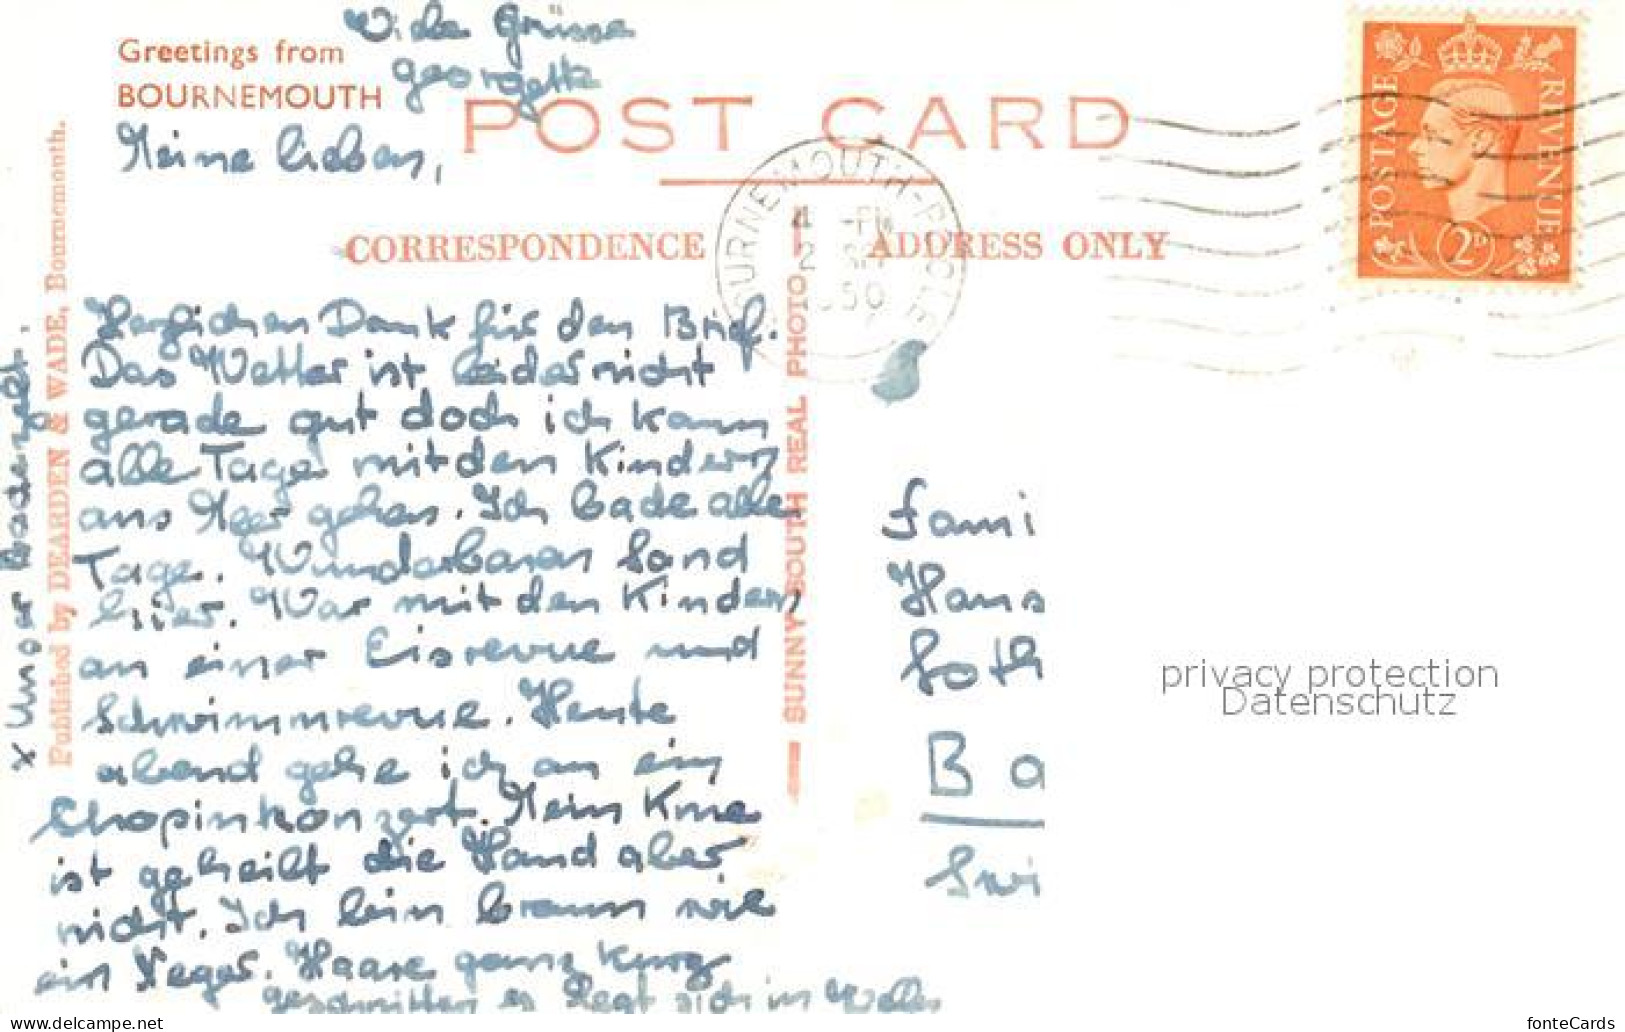 Viele Grüsse
Georgette
Greetings from
BOURNEMOUTH
POST CARD
Meine lieben,
CORRESPONDENCE
ADDRESS ONLY
Herzlichen Dank für den Brief.
Das Wetter ist leider nicht
gerade gut doch ich kann
alle Tage mit den Kindern
ans Meer gehen. Ich bade alle
Tage. Wunderbaren Sand
hier. War mit den Kindern
an einer Eisrevue und
Schwimmrevue. Heute
abend gehe ich an ein
Chopinkonzert. Mein Knie
ist geheilt die Hand aber
nicht. Ich bin braun wie
ein Neger. Haare ganz kurz
geschnitten es legt sich in Wellen
x Unser Badezelt.
Published by DEARDEN & WADE, Bournemouth.
SUNNY SOUTH REAL PHOTO
BOURNEMOUTH-POOLE
4 -PM
2
1950
POSTAGE
REVENUE
2D
Fami
Hans
Soth
Ba
Swi
privacy protection
Datenschutz
www.delcampe.net
fonteCards